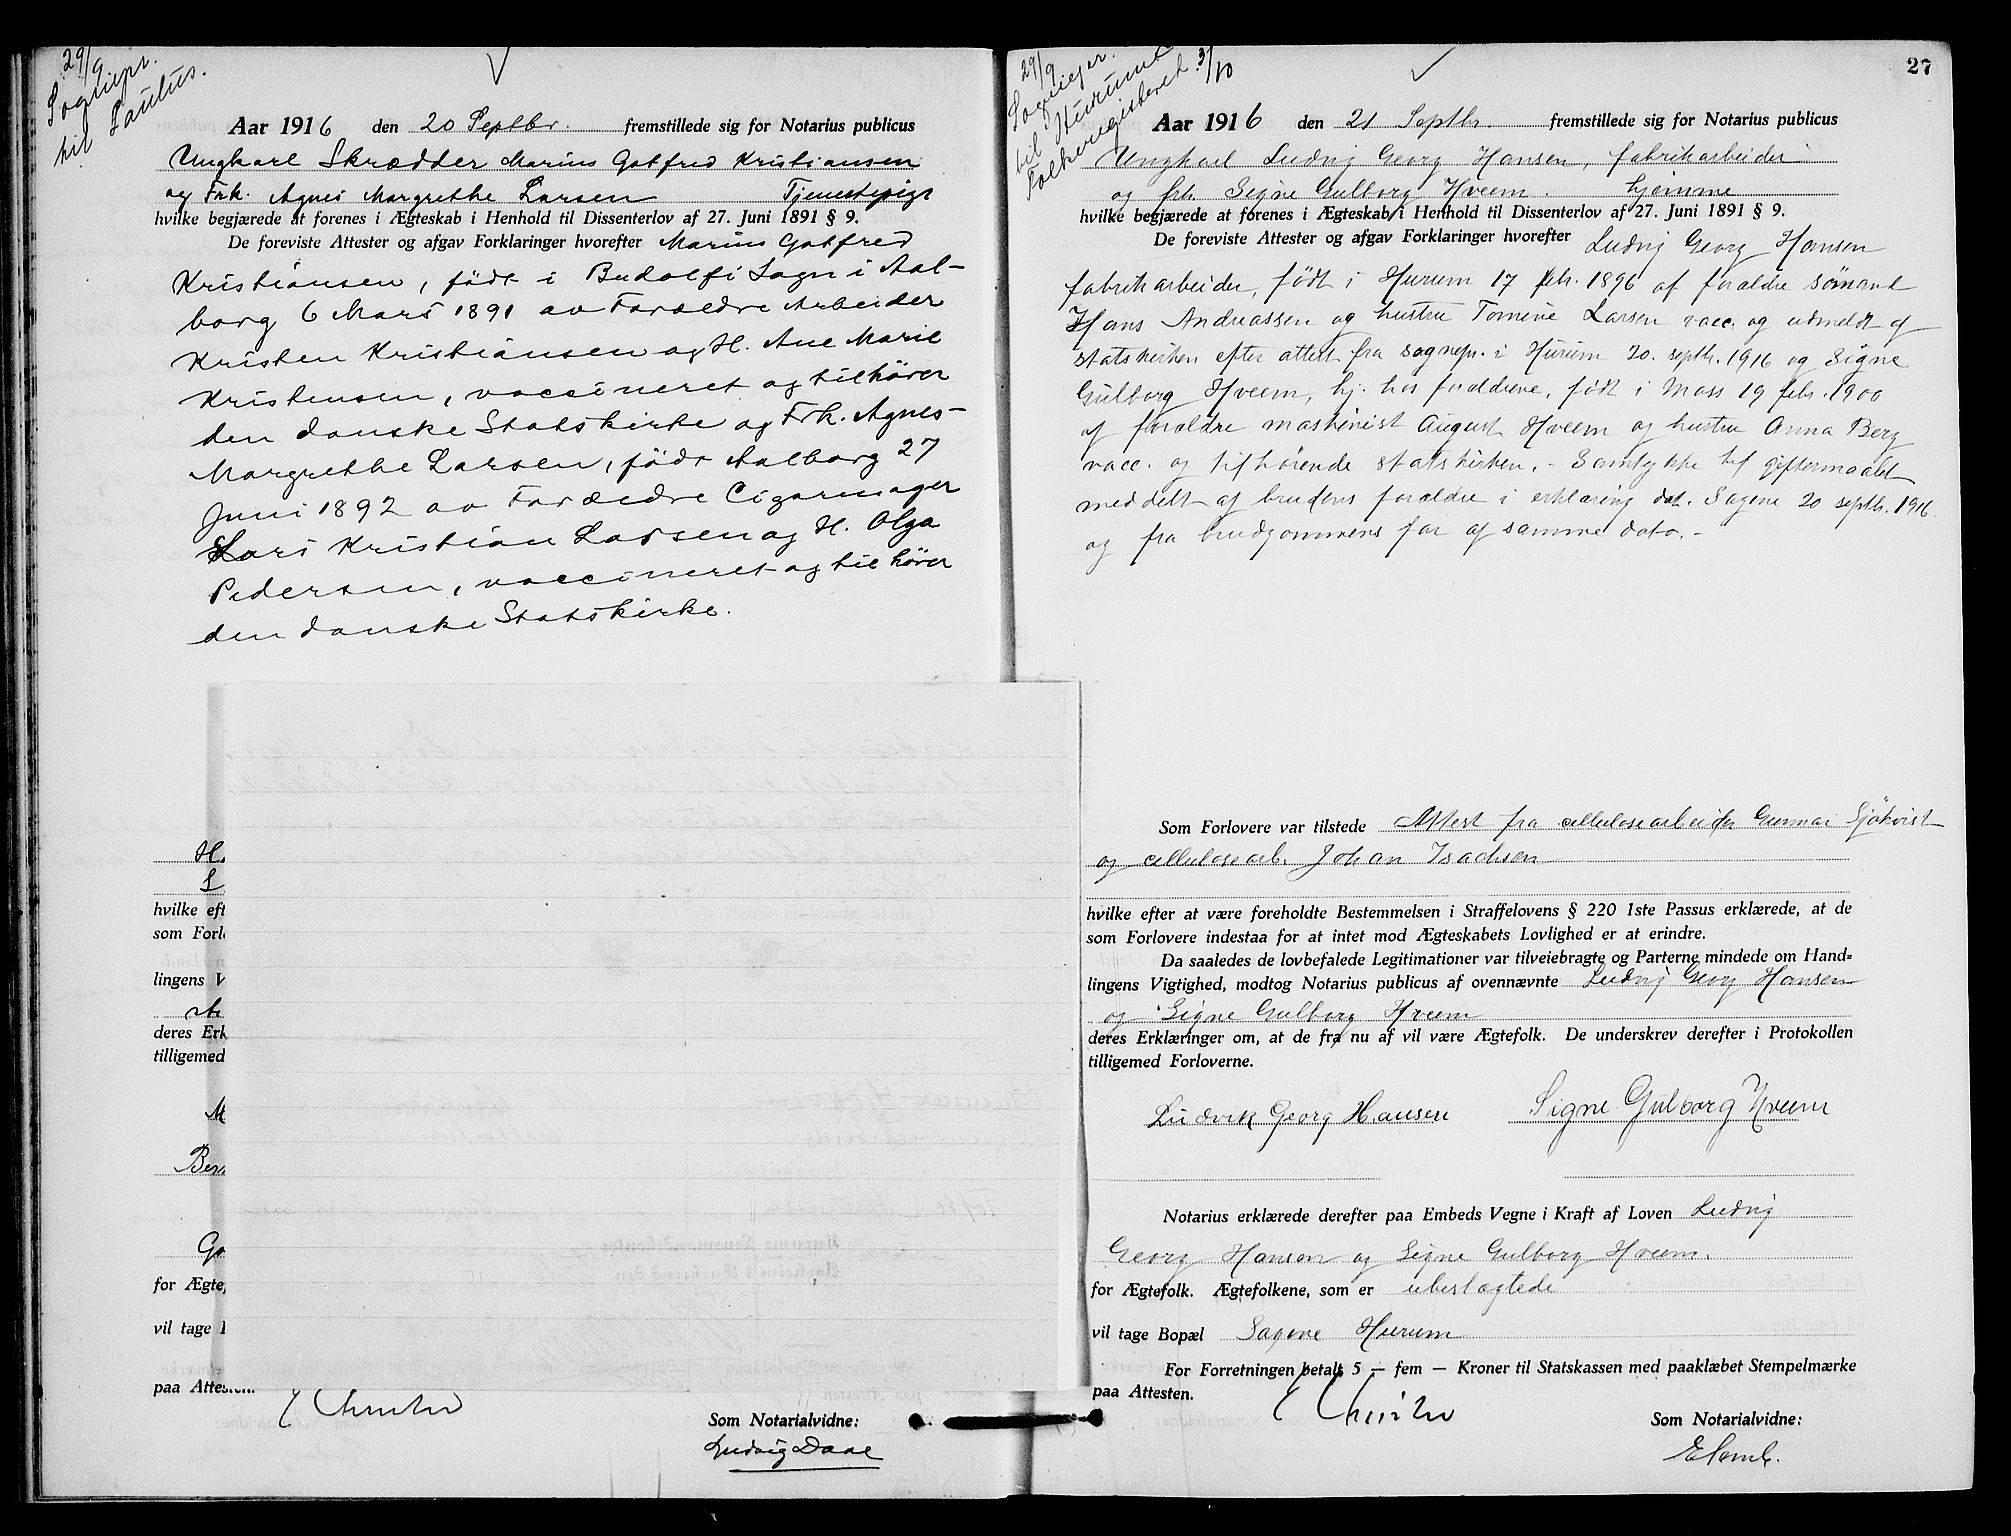 29/9
Sognepr.
til Paulus.
Aar 1916 den 20 Septbr. fremstillede sig for Notarius publicus
Ungkarl Skrædder Marius Gotfred Kristiansen
og Frk. Agnes Margrethe Larsen Tjenestepige
hvilke begjærede at forenes i Ægteskab i Henhold til Dissenterlov af 27. Juni 1891 § 9.
De foreviste Attester og afgav Forklaringer hvorefter Marius Gotfred
Kristiansen, född i Budolfi Sogn i Aal-
borg 6 Mars 1891 av Forældre Arbeider
Kristen Kristiansen og H. Ane Marie
Kristensen, vaccineret og tilhører
den danske Statskirke og Frk. Agnes
Margrethe Larsen, född Aalborg 27
Juni 1892 av Forældre Cigarmager
Lars Kristian Larsen og H. Olga
Pedersen, vaccineret og tilhører
den danske Statskirke.
H.
L
hvilke eft
som Forl
lingens V
deres Erk
tilligemed
M
Ber
Go
for Ægte
vil tage
paa Attesten.
Som Notarialvidne:
Ludvig Daae
27
29/9
Sogneepr.
til Hurum
Folkeregisteret 3/10
Aar 1916 den 21 Septbr. fremstillede sig for Notarius publicus
Ungkarl Ludvig Georg Hansen, fabrikarbeider
og frk. Signe Gulborg Hveem. hjemme
hvilke begjærede at forenes i Ægteskab i Henhold til Dissenterlov af 27. Juni 1891 § 9.
De foreviste Attester og afgav Forklaringer hvorefter Ludvig Georg Hansen
fabrikarbeider, født i Hurum 17 febr. 1896 af foraldre sømand
Hans Andreassen og hustru Tomine Larsen vacc. og udmeldt af
statskirken efter attest fra sognepr. i Hurum 20. septbr. 1916 og Signe
Gulborg Hveem, hj. hos foraldrene, født i Moss 19 febr. 1900
af foraldre maskinist August Hveem og hustru Anna Berg
vacc. og tilhørende statskirken. - Samtykke til giftermaalet
meddelt af brudens foraldre i erklæring dat. Sagene 20 septbr. 1916
og fra brudgommens far af samme dato. -
Som Forlovere var tilstede Attest fra cellulosearbeider Gunnar Sjökvist
og cellulosearb. Johan Isachsen
hvilke efter at være foreholdte Bestemmelsen i Straffelovens § 220 1ste Passus erklærede, at de
som Forlovere indestaa for at intet mod Ægteskabets Lovlighed er at erindre.
Da saaledes de lovbefalede Legitimationer var tilveiebragte og Parterne mindede om Hand=
lingens Vigtighed, modtog Notarius publicus af ovennævnte Ludvig Georg Hansen
og Signe Gulborg Hveem
deres Erklæringer om, at de fra nu af vil være Ægtefolk. De underskrev derefter i Protokollen
tilligemed Forloverne.
Ludvik Georg Hansen Signe Gulborg Hveem
Notarius erklærede derefter paa Embeds Vegne i Kraft af Loven Ludvig
Georg Hansen og Signe Gulborg Hveem.
for Ægtefolk. Ægtefolkene, som er ubeslægtede
vil tage Bopæl Sagene Hurum
For Forretningen betalt 5 — fem — Kroner til Statskassen med paaklæbet Stempelmærke
paa Attesten.
Som Notarialvidne: